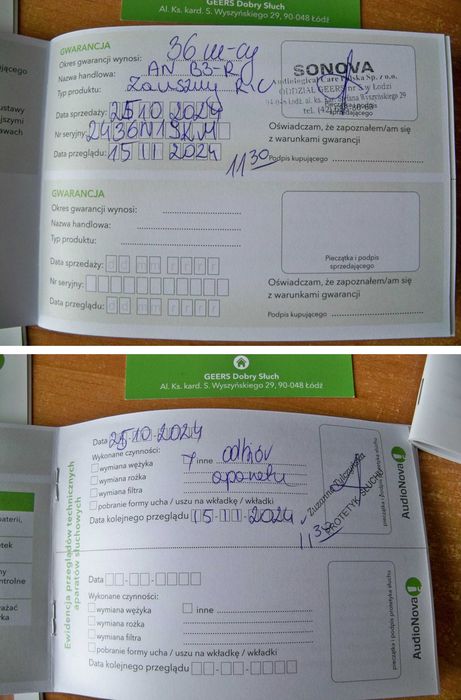 GEERS Dobry Słuch
Al. Ks. kard. S. Wyszyńskiego 29, 90-048 Łódź
GWARANCJA
Okres gwarancji wynosi: 36 m-cy
Nazwa handlowa: AN B3-R
Typ produktu: Zauszny RIC
Data sprzedaży: 25 10 2024
Nr seryjny: 2436N19KM
Data przeglądu: 15 11 2024
11 30
SONOVA
Audiological Care Polska Sp. z o.o.
ODDZIAŁ GEERS nr 5 w Łodzi
sprzedającego
Oświadczam, że zapoznałem/am się
z warunkami gwarancji
Podpis kupującego
GWARANCJA
Okres gwarancji wynosi:
Nazwa handlowa:
Typ produktu:
Data sprzedaży: d d m m r r r r
Nr seryjny:
Data przeglądu: d d m m r r r r
Pieczątka i podpis
sprzedającego
Oświadczam, że zapoznałem/am się
z warunkami gwarancji
Podpis kupującego
GEERS Dobry Słuch
Al. Ks. kard. S. Wyszyńskiego 29, 90-048 Łódź
Ewidencja przeglądów technicznych
aparatów słuchowych
Data 25-10-2024
Wykonane czynności:
wymiana wężyka
inne odbiór
wymiana rożka
aparatu
wymiana filtra
pobranie formy ucha / uszu na wkładkę / wkładki
Data kolejnego przeglądu 15-11-2024
11 30
PROTETYK SŁUCHU
pieczątka i podpis protetyka słuchu
AudioNova
Data
Wykonane czynności:
wymiana wężyka
inne
wymiana rożka
wymiana filtra
pobranie formy ucha / uszu na wkładkę / wkładki
Data kolejnego przeglądu
pieczątka i podpis protetyka słuchu
AudioNova